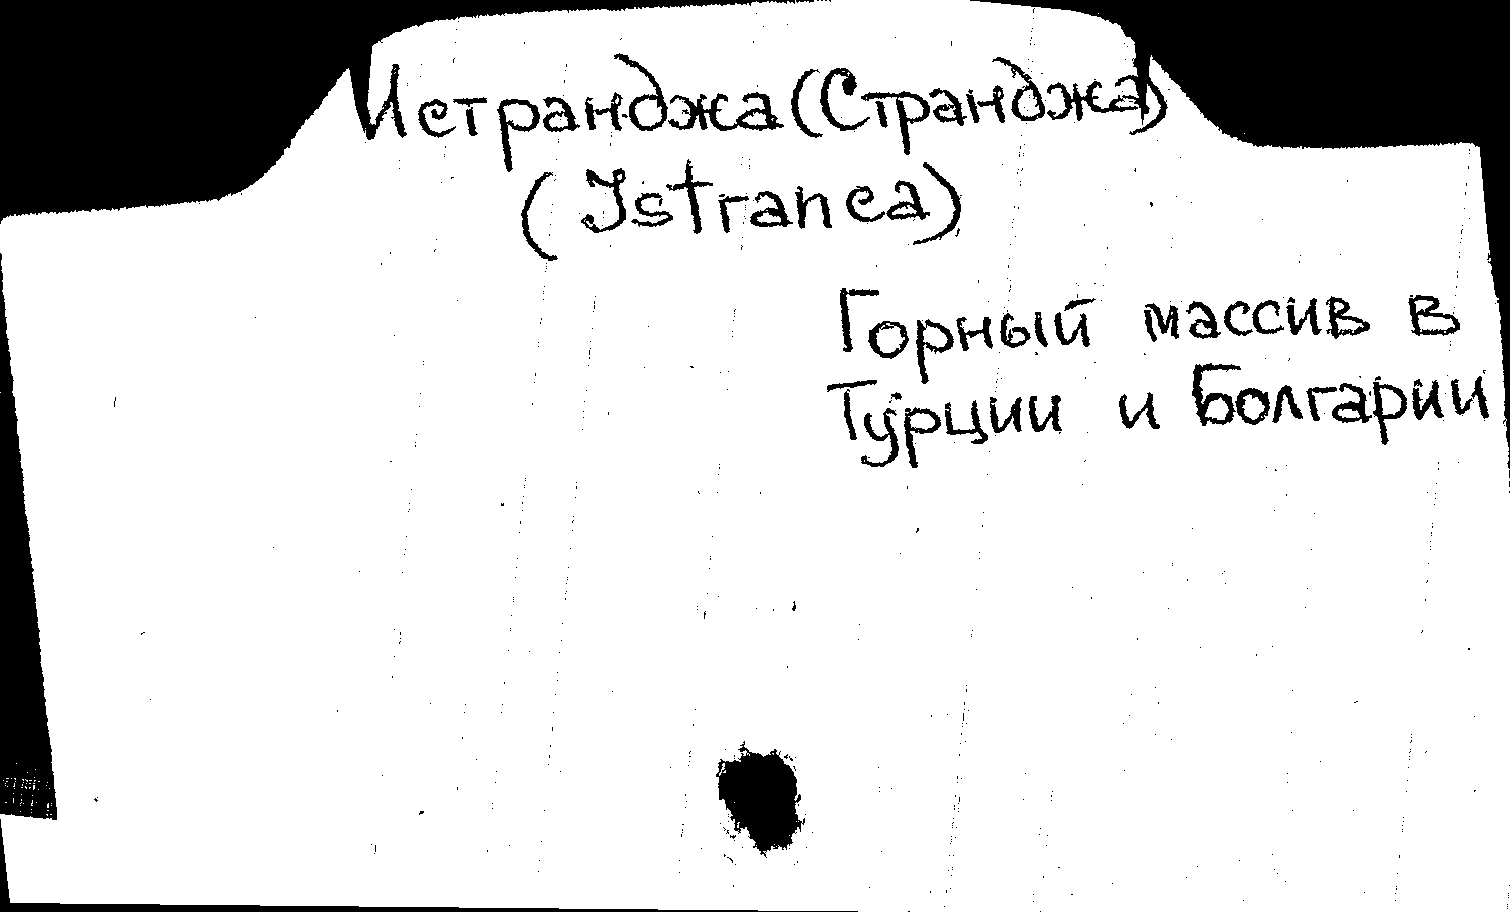 Истранджа (Странджа)
(Istranca)
Горный массив в
Турции и Болгарии